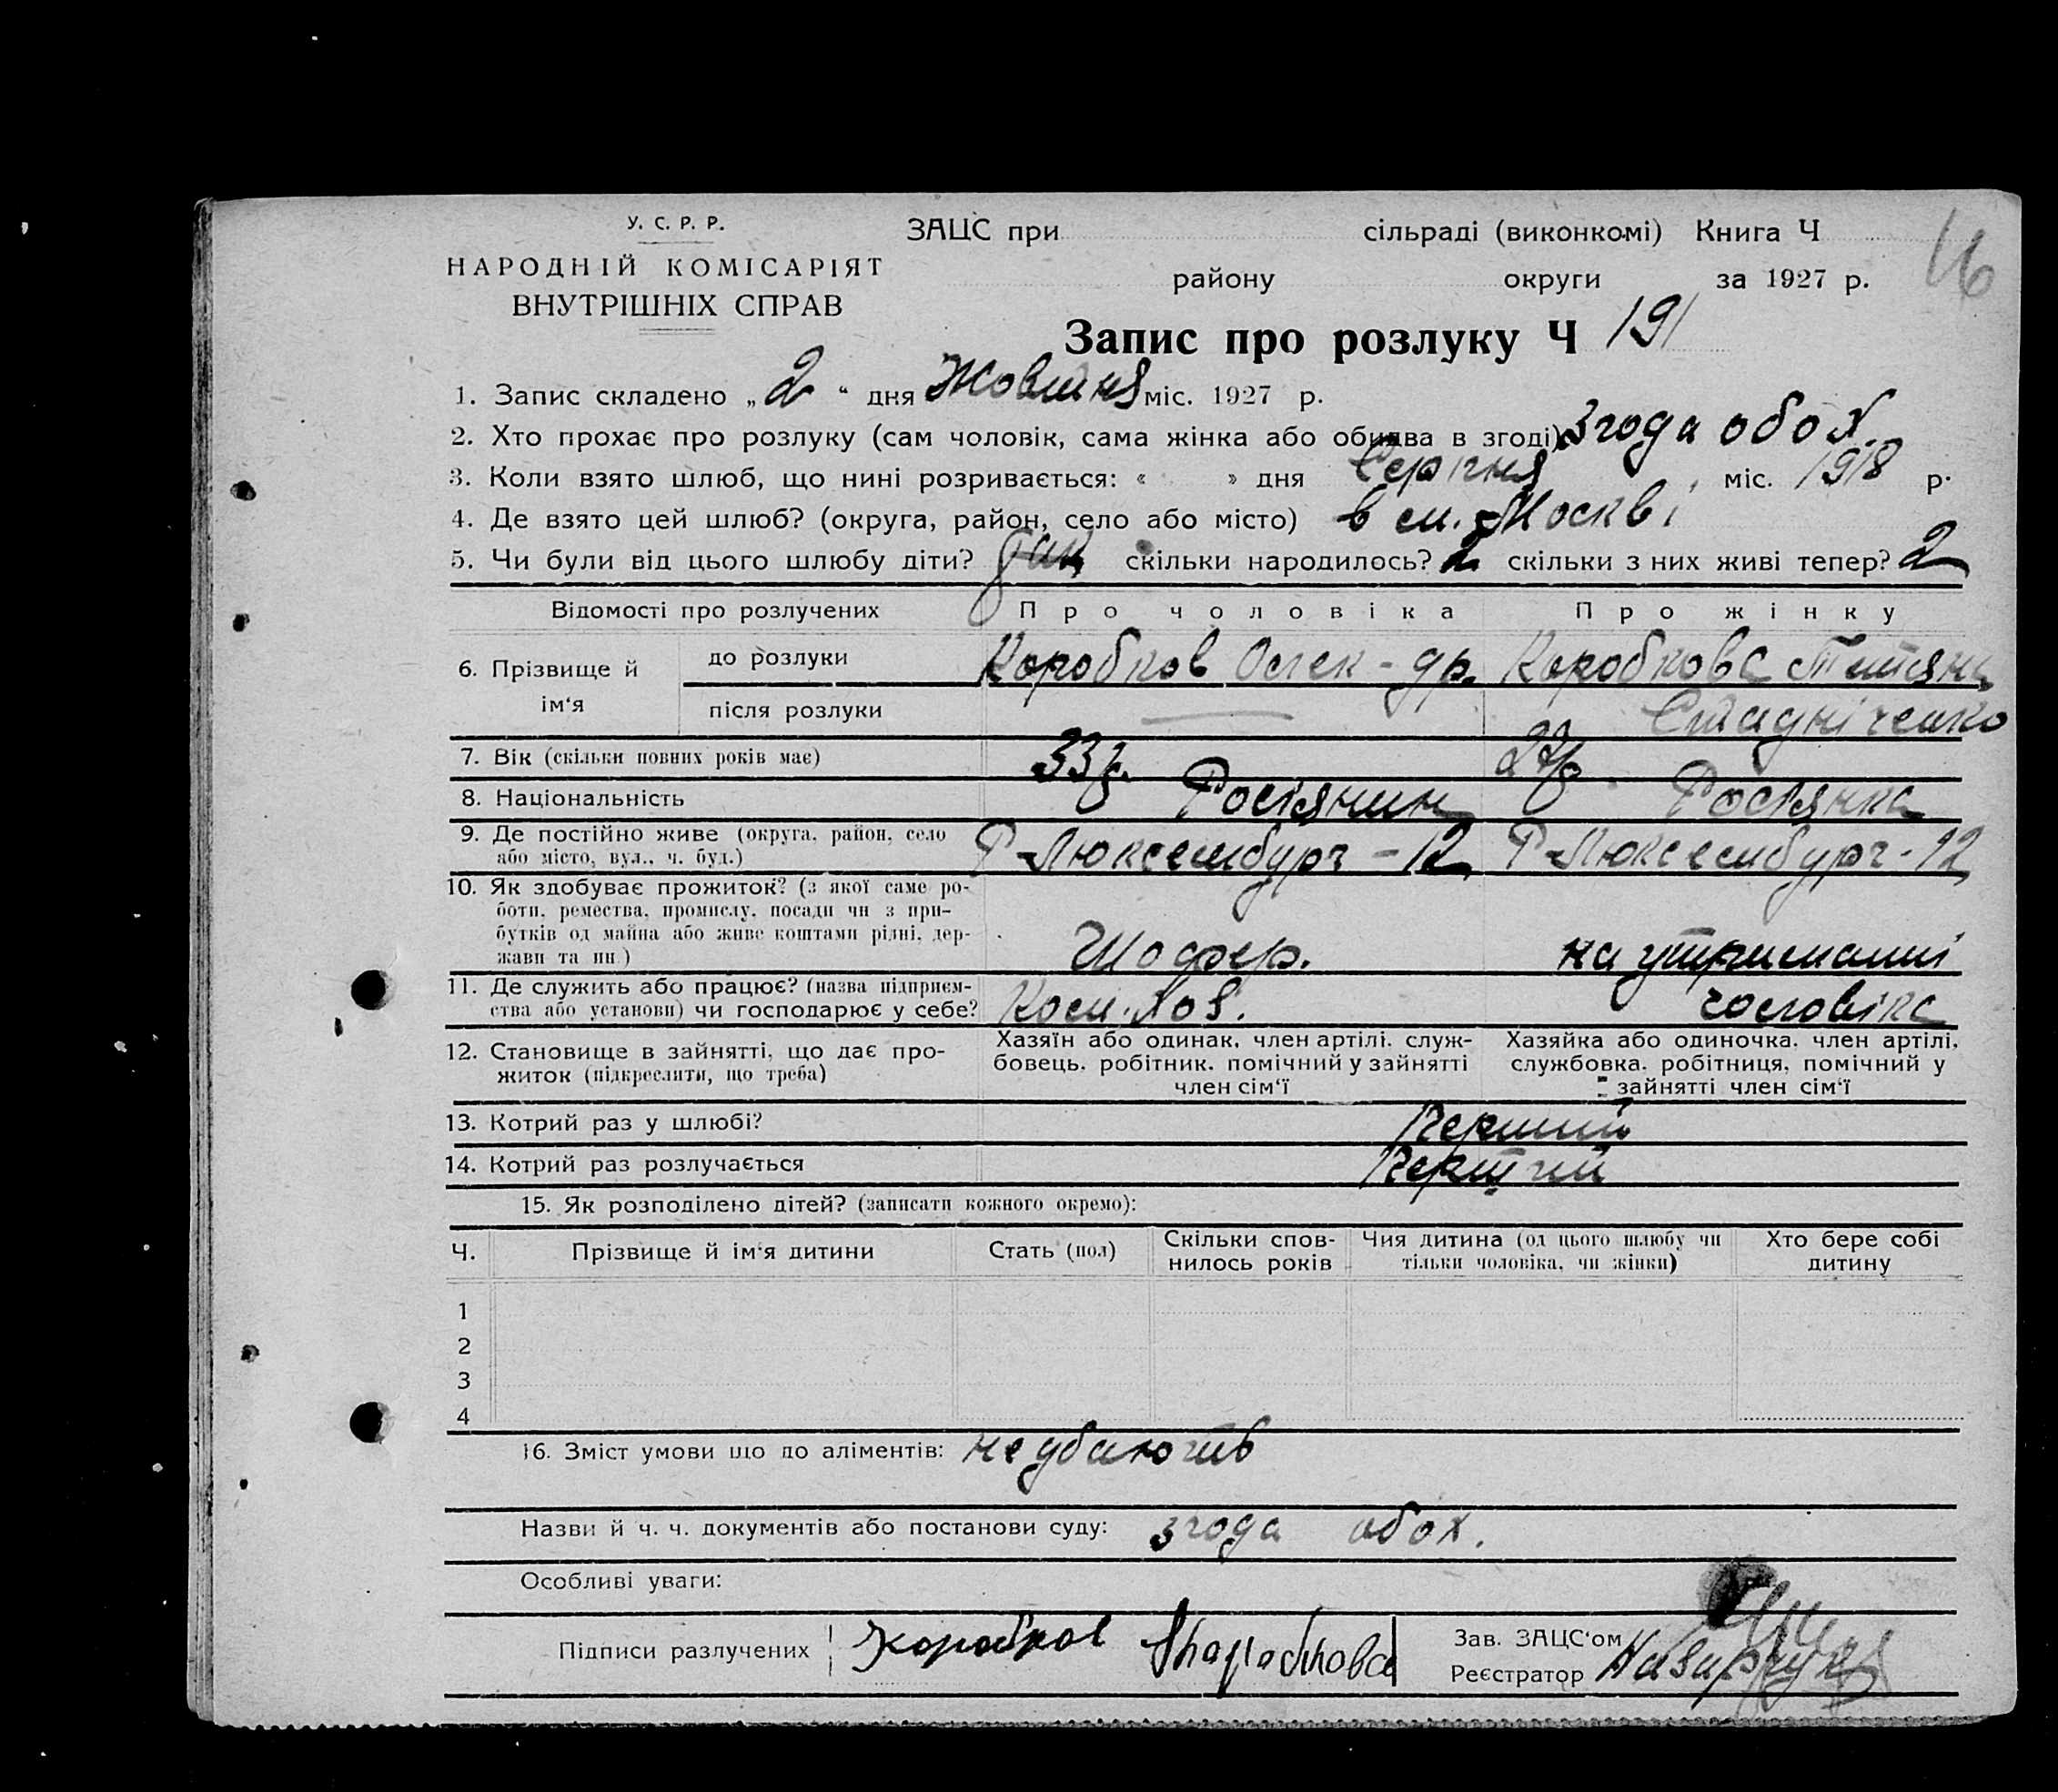 У. С. Р. Р.
НАРОДНІЙ КОМІСАРІЯТ
ВНУТРІШНІХ СПРАВ
ЗАЦС при сільраді (виконкомі) Книга Ч
16
району округи за 1927 р.
Запис про розлуку Ч 191
1. Запис складено „ 2 “ дня Жовтня міс. 1927 р.
2. Хто прохає про розлуку (сам чоловік, сама жінка або обидва в згоді) Згода обох.
3. Коли взято шлюб, що нині розривається: « » дня Серпня міс. 1918 р.
4. Де взято цей шлюб? (округа, район, село або місто) в м. Москві
5. Чи були від цього шлюбу діти? скільки народилось? 2 скільки з них живі тепер? 2
Відомості про розлучених Про чоловіка Про жінку
6. Прізвище й ім‘я до розлуки Коробков Олек-др. Коробкова Тетяна
після розлуки — Стадніченко
7. Вік (скільки повних років має) 33 р. 27 р.
8. Національність Росіянин Росіянка
9. Де постійно живе (округа, район, село
або місто, вул., ч. буд.) Р-Люксембург-12 Р-Люксембург-12
10. Як здобуває прожиток? (з якої саме ро-
боти, ремества, промислу, посади чи з при-
бутків од майна або живе коштами рідні, дер-
жави та ин.) Шофер. на утриманні
11. Де служить або працює? (назва підприєм-
ства або установи) чи господарює у себе? чоловіка
12. Становище в зайнятті, що дає про-
житок (підкреслити, що треба)
Хазяїн або одинак, член артілі, служ-
бовець, робітник, помічний у зайнятті
член сім‘ї
Хазяйка або одиночка, член артілі,
службовка, робітниця, помічний у
зайнятті член сім‘ї
13. Котрий раз у шлюбі? Перший
14. Котрий раз розлучається Перший
15. Як розподілено дітей? (записати кожного окремо):
Ч. Прізвище й ім‘я дитини Стать (пол) Скільки спов-
нилось років Чия дитина (од цього шлюбу чи
тільки чоловіка, чи жінки) Хто бере собі
дитину
1
2
3
4
16. Зміст умови що до аліментів: не дбають
Назви й ч. ч. документів або постанови суду: згода обох.
Особливі уваги:
Підписи разлучених Коробков Коробкова
Зав. ЗАЦС‘ом
Реєстратор